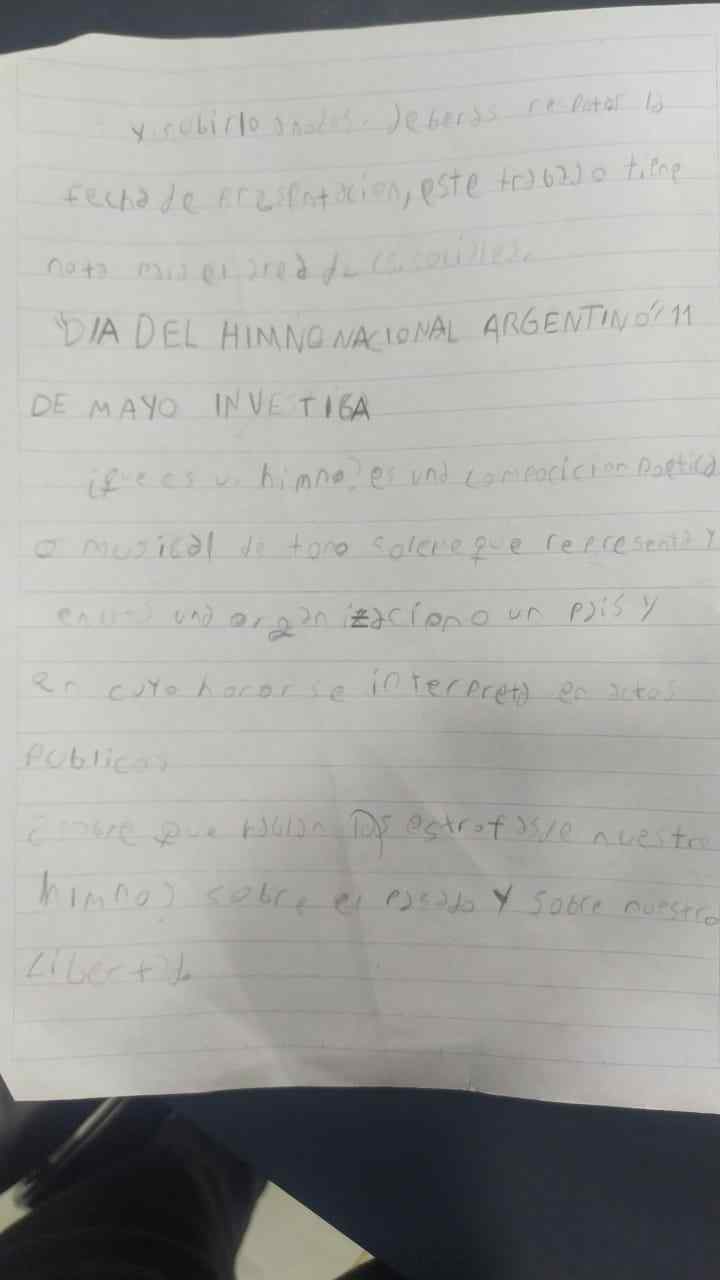 y subirlo dotos. deberas respetar la
fecha de presentacion, este trabajo tiene
nota para el area de
"DIA DEL HIMNO NACIONAL ARGENTINO" 11
DE MAYO INVETIGA
¿que es un himno? es una composicion poetica
o musical de tono solene que representa y
una organizacion o un pais y
en cuyo honor se interpreta en actos
publicos
¿sobre que hablan las estrofas de nuestro
himno? sobre el pasado y sobre nuestra
Libertad